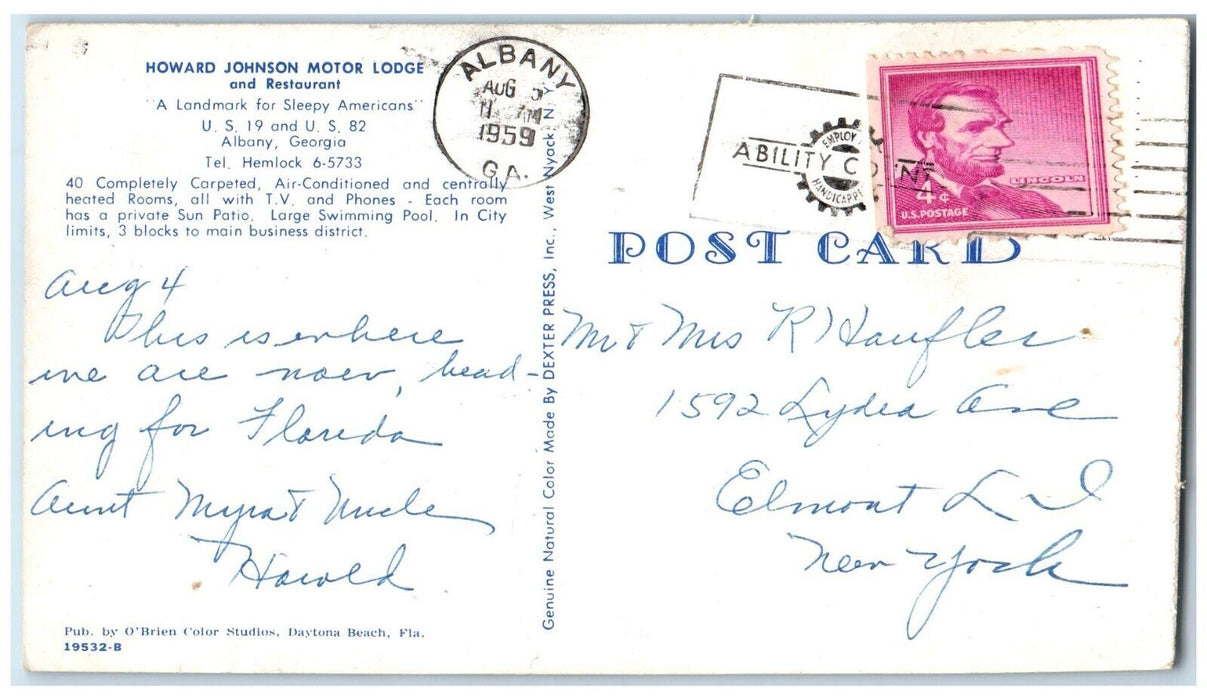 HOWARD JOHNSON MOTOR LODGE
and Restaurant
"A Landmark for Sleepy Americans"
U. S. 19 and U. S. 82
Albany, Georgia
Tel. Hemlock 6-5733
40 Completely Carpeted, Air-Conditioned and centrally
heated Rooms, all with T.V. and Phones - Each room
has a private Sun Patio. Large Swimming Pool. In City
limits, 3 blocks to main business district.
Aug 4
This is where
we are now, head-
ing for Florida
Aunt Myra & Uncle
Harold
Pub. by O'Brien Color Studios, Daytona Beach, Fla.
19532-B
Genuine Natural Color Made By DEXTER PRESS, Inc., West Nyack, N. Y.
ALBANY
AUG
AM
1959
GA.
EMPLOY
ABILITY
HANDICAPPE
LINCOLN
4¢
U.S. POSTAGE
POST CARD
Mr & Mrs R Haufler
1592 Lydia Ave
Elmont L I
New York